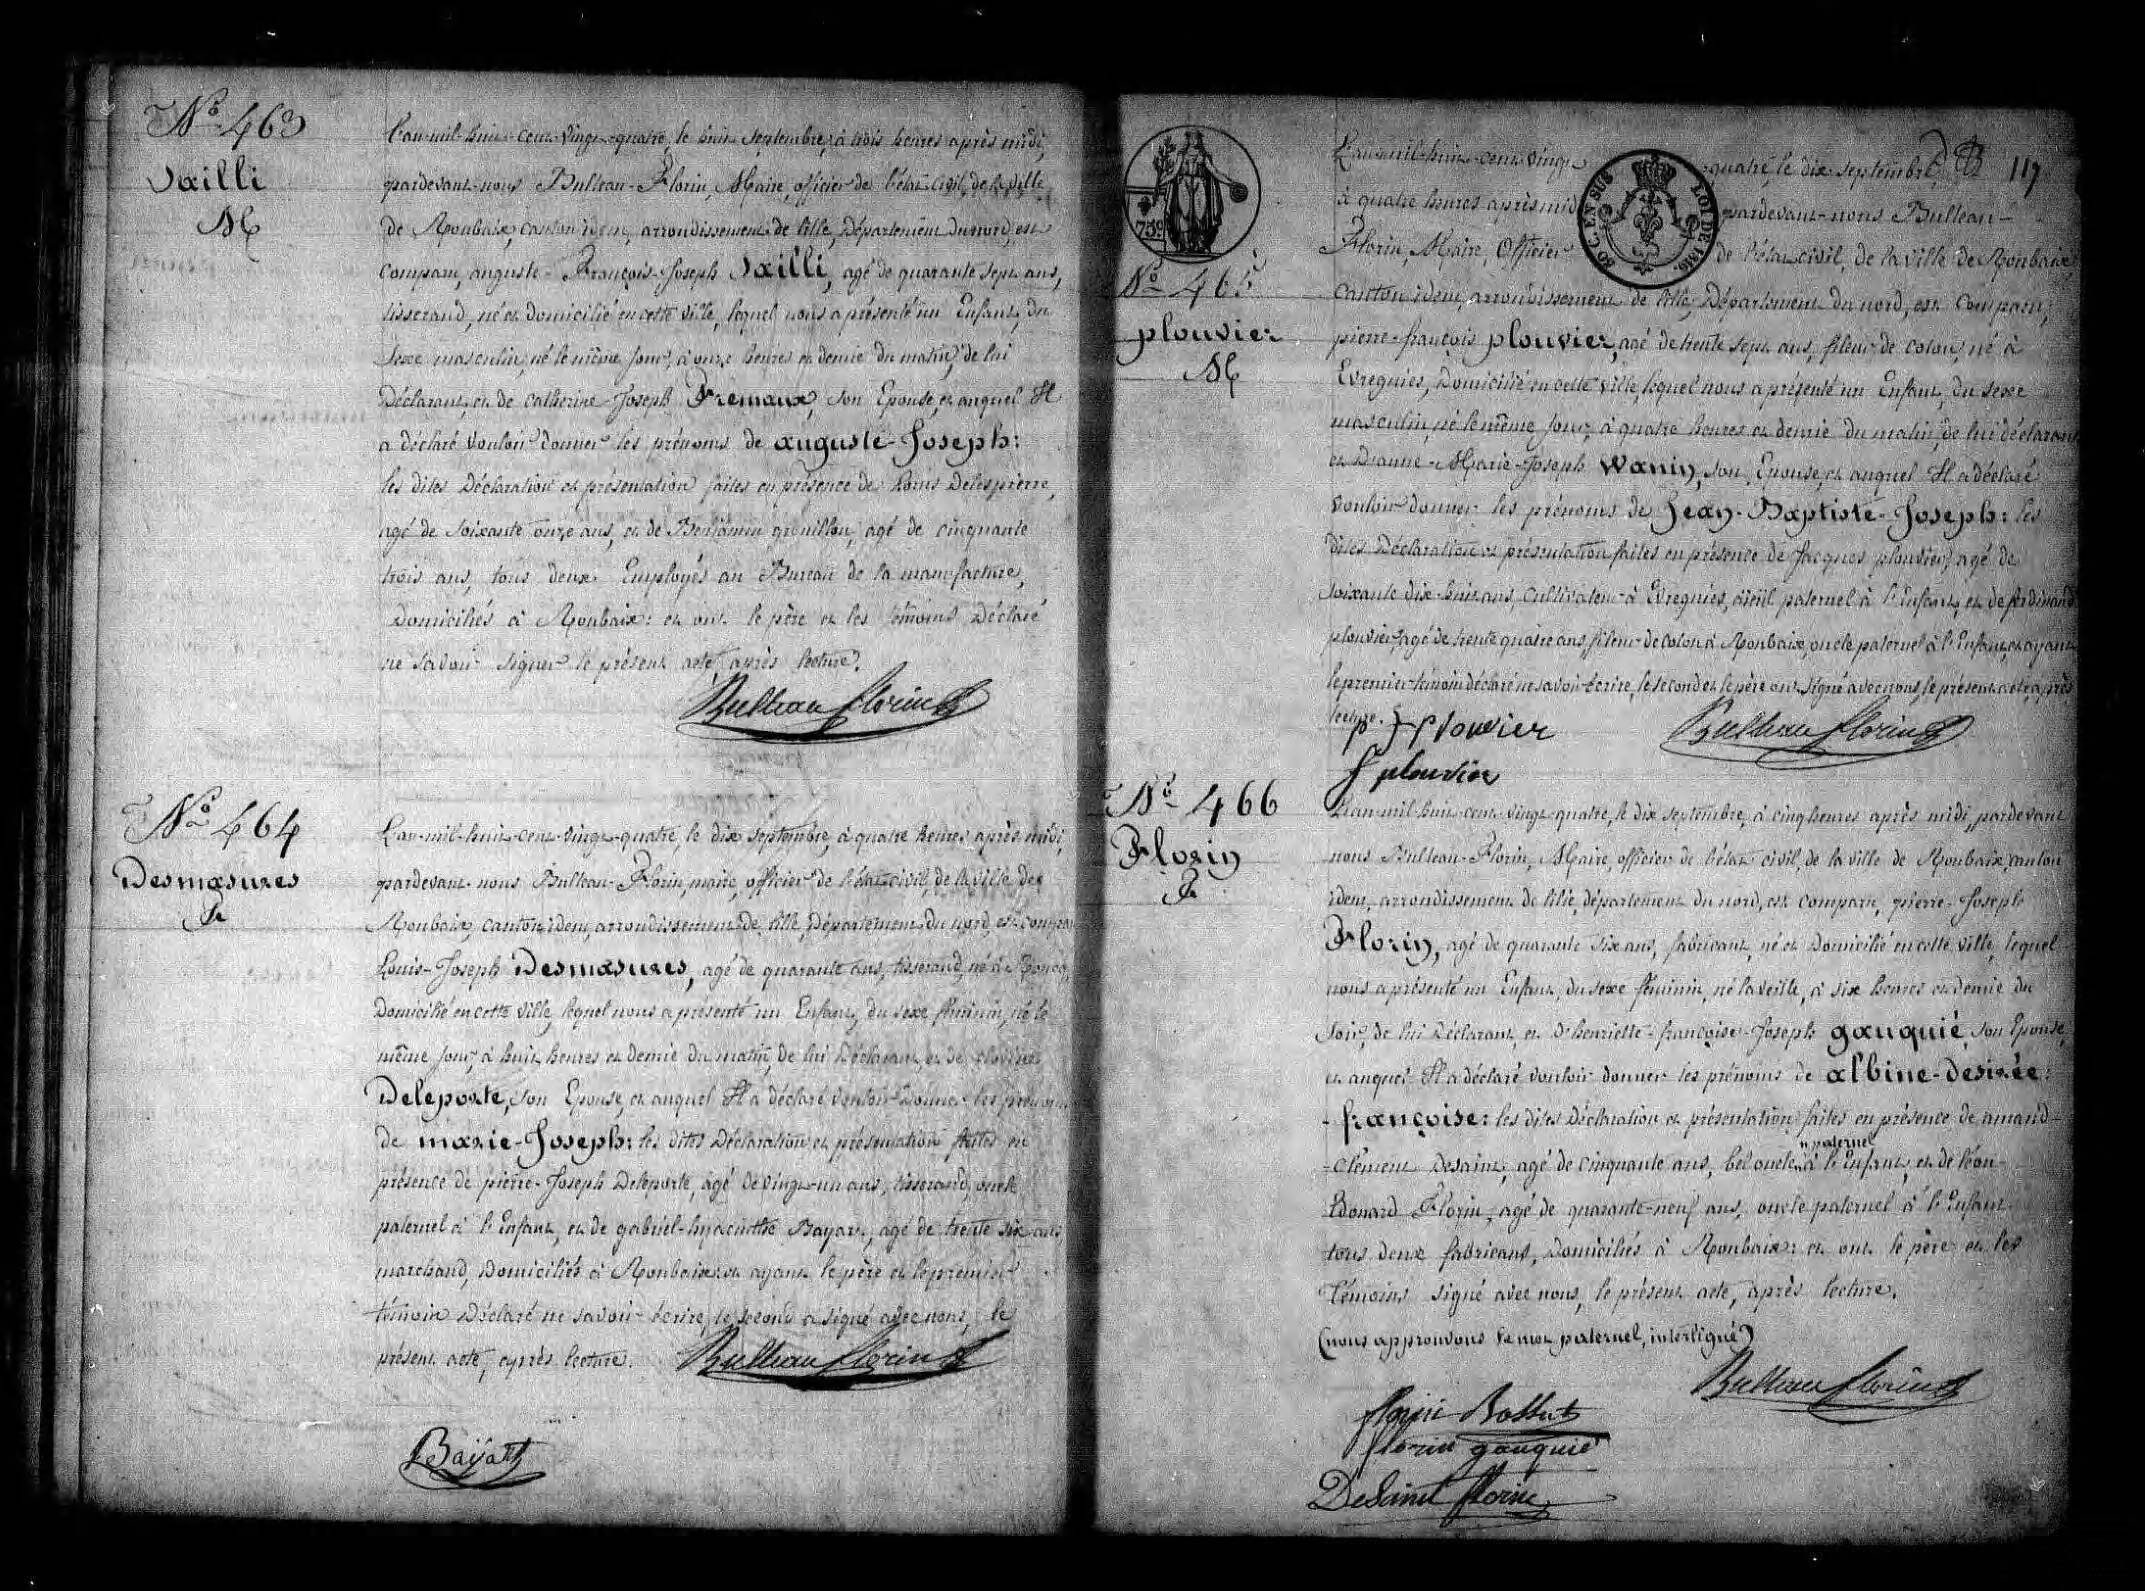 No 463
Vailli
M
L'an-mil-huit-cent-vingt-quatre, le huit septembre, à trois heures après midi,
pardevant-nous Bulteau-Florin, Maire, officier de l'état civil, de la ville
de Roubaix, canton idem, arrondissement de lille, Département du nord, est
comparu, auguste-François-Joseph Vailli, agé de quarante sept ans,
tisserand, né et domicilié en cette ville, lequel nous a présenté un Enfant, du
sexe masculin, né le même jour, à onze heures et demie du matin, de lui
Déclarant, et de catherine Joseph Fremaux, son Epouse, et auquel Il
a déclaré vouloir donner les prénoms de auguste-Joseph:
les dites Déclaration et présentation faites en présence de Louis Delespierre,
agé de soixante onze ans, et de Benjamin grouillon, agé de cinquante
trois ans, tous deux Employés au Bureau de la manufacture,
Domiciliés à Roubaix: et ont le père et les témoins Déclaré
ne savoir signer le présent acte, après lecture.
Bulteau florin
No 464
Desmasures
f.
L'an-mil-huit-cent-vingt-quatre, le dix septembre, à quatre heures après midi,
pardevant-nous Bulteau-Florin, maire, officier de l'état civil, de la ville de
Roubaix, canton idem, arrondissement de lille, Département du nord, est comparu
Louis-Joseph Desmasures, agé de quarante ans, tisserand, né à Roncq,
Domicilié en cette ville, lequel nous a présenté un Enfant, du sexe féminin, né le
même jour, à huit heures et demie du matin, de lui Déclarant, et de
Deleporte, son Epouse, et auquel Il a déclaré vouloir Donner les prénoms
de marie-Joseph: les dites Déclaration et présentation faites en
présence de pierre-Joseph Deleporte, agé de vingt-un ans, tisserand, oncle
paternel à l'Enfant, et de gabriel-hyacinthe Bayart, agé de trente six ans
marchand, Domiciliés à Roubaix: et ayant le père et le premier
témoin Déclaré ne savoir écrire, le second a signé avec nous, le
présent acte, après lecture. Bulteau florin
Bayart
117
75c
50 C. EN SUS LOI DE 1816.
L'an-mil-huit-cent-vingt quatre, le dix septembre,
à quatre heures après midi pardevant-nous Bulteau-
Florin, Maire, Officier de l'état civil, de la ville de Roubaix,
No 465
plouvier
M
canton idem, arrondissement de lille, Département du nord, est comparu,
pierre-françois plouvier, agé de trente sept ans, fileur de coton, né à
Evregnies, Domicilié en cette ville, lequel nous a présenté un Enfant, du sexe
masculin, né le même jour, à quatre heures et demie du matin, de lui déclarant
et Dianne-Marie-Joseph Wanin, son Epouse, et auquel Il a déclaré
vouloir donner les prénoms de Jean-Baptiste-Joseph: les
dites Déclaration et présentation faites en présence de Jacques plouvier, agé de
soixante dix-huit ans, cultivateur à Evregnies, aïeül paternel à l'Enfant, et de ferdinand
plouvier, agé de trente quatre ans, fileur de coton à Roubaix, oncle paternel à l'Enfant, et ayant
le premier témoin déclaré ne savoir écrire, le second et le père ont signé avec nous, le présent acte, après
lecture.
p f plouvier
Bulteau florin
f plouvier
No 466
Florin
f.
L'an-mil-huit-cent-vingt-quatre, le dix septembre, à cinq heures après midi, pardevant
nous Bulteau-Florin, Maire, officier de l'état civil, de la ville de Roubaix, canton
idem, arrondissement de lille, département du nord, est comparu, pierre-Joseph
Florin, agé de quarante six ans, fabricant, né et Domicilié en cette ville, lequel
nous a présenté un Enfant, du sexe féminin, né la veille, à six heures et demie du
soir, de lui Déclarant, et d'henriette-françoise-Joseph gauquié, son Epouse,
et auquel Il a déclaré vouloir donner les prénoms de albine-desirée-
-françoise: les dites Déclaration et présentation faites en présence de amand-
-clément Desaint, agé de cinquante ans, bel oncle "paternel à l'Enfant, et de léon-
Edouard Florin, agé de quarante-neuf ans, oncle paternel à l'Enfant
tous deux fabricans, Domiciliés à Roubaix: et ont le père et les
Témoins signé avec nous, le présent acte, après lecture.
(nous approuvons le mot paternel, interligné)
Bulteau florin
florin Bossut
florin gauquié
DeSaint florin